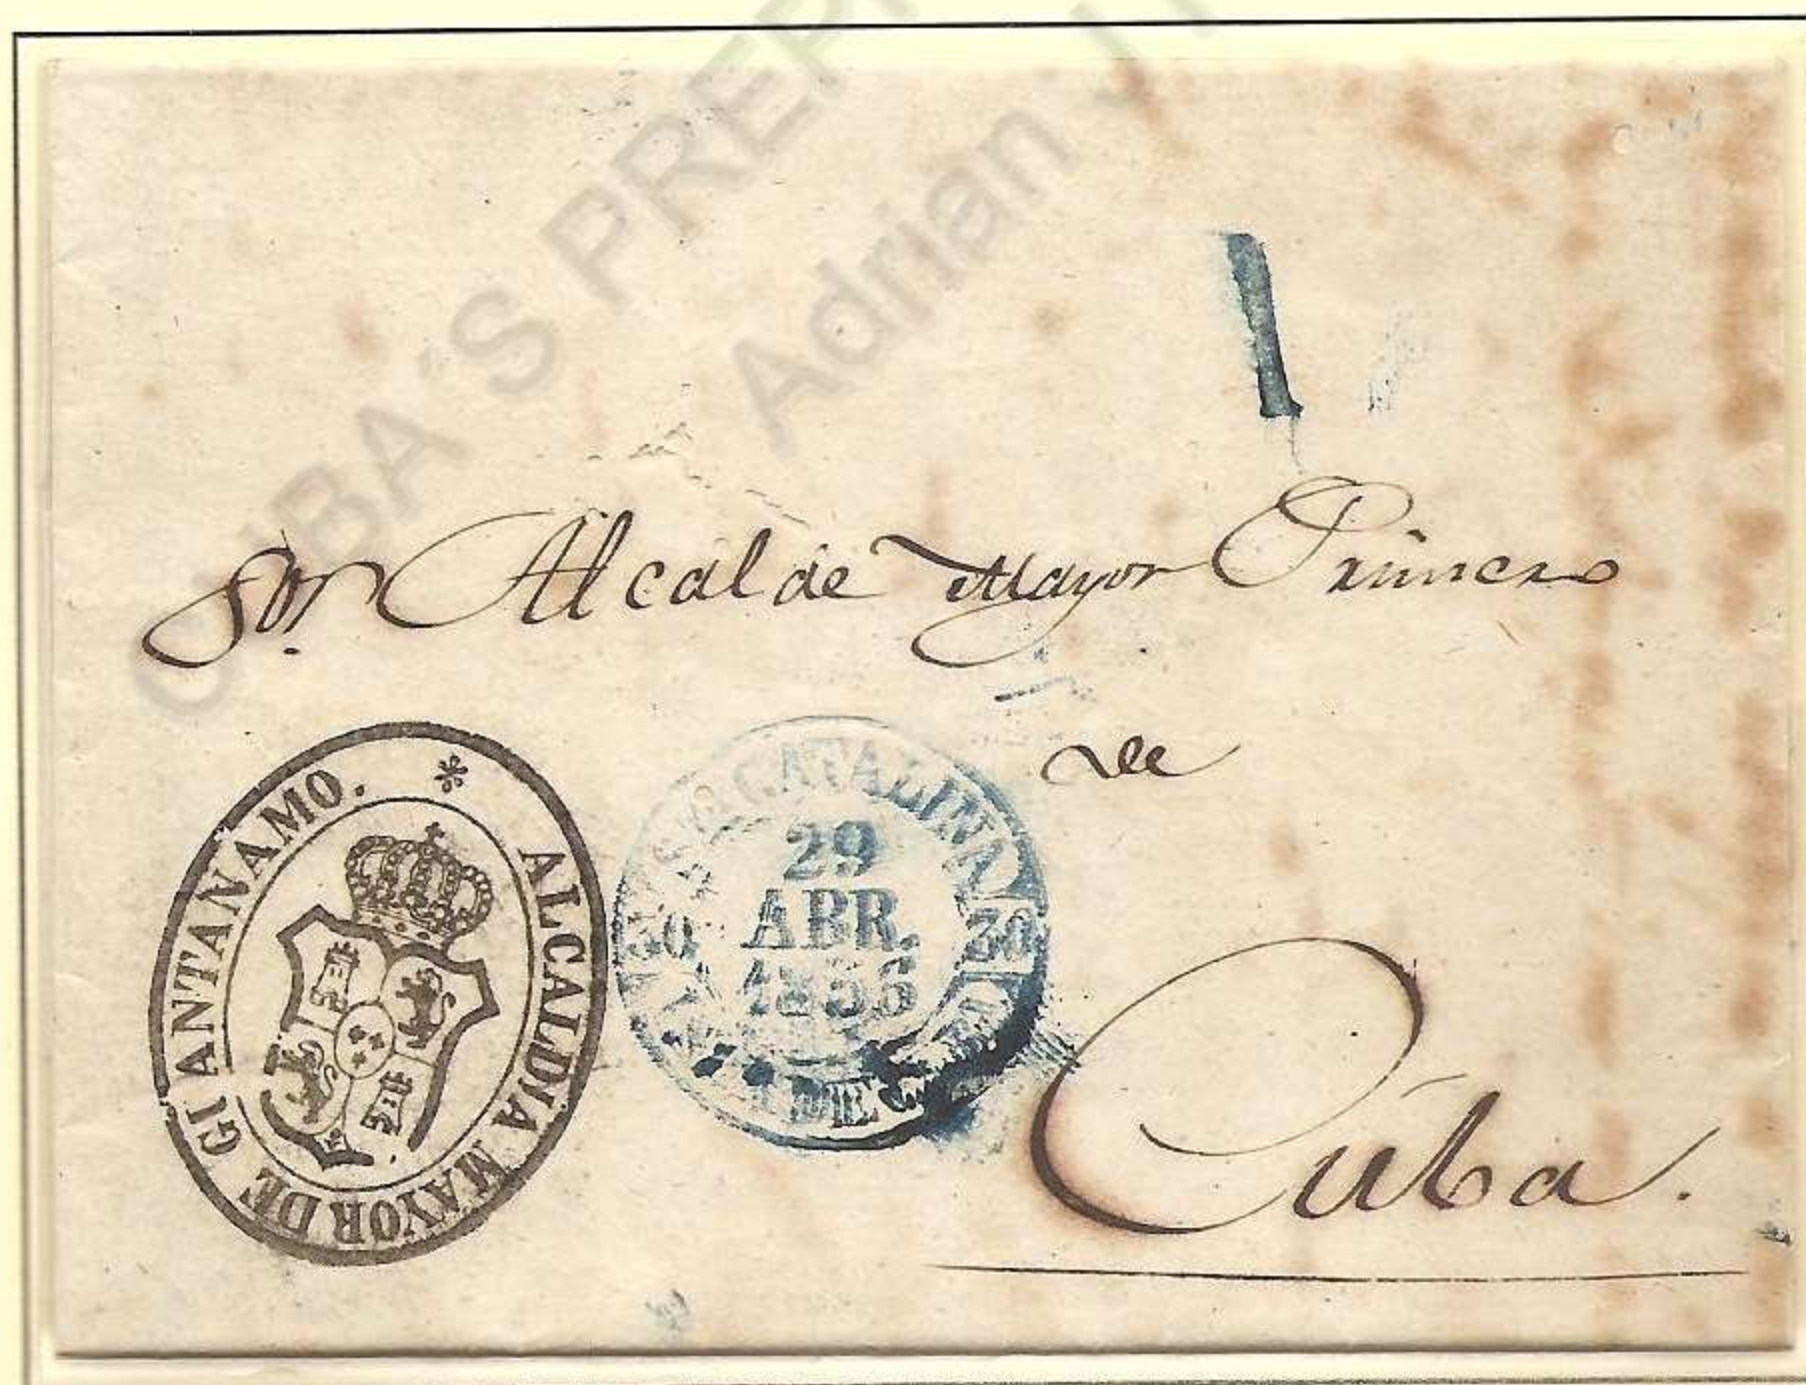 CUBA´S PREP
Adrian
1
Sor. Alcalde Mayor Primero
de
Cuba.
ALCALDIA MAYOR DE GUANTANAMO. *
Sª CATALINA
30 30
29
ABR.
1856
DE